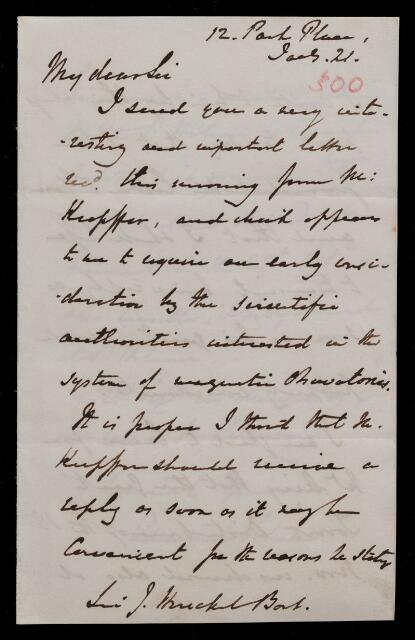 12. Park Place,
Jany. 21.
500
My dear Sir
I send you a very inte-
-resting and important letter
recd. this morning from M:
Kupffer, and which appears
to me to require an early consi-
-deration by the scientific
authorities interested in the
system of magnetic Observatories.
It is proper I think that M.
Kupffer should receive a
reply as soon as it may be
convenient for the reasons he states
Sir J. Herschel Bart.